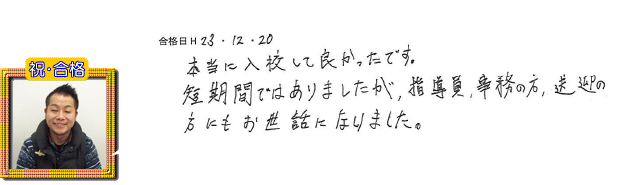 合格日H 23・12・20
祝・合格
本当に入校して良かったです。
短期間ではありましたが、指導員、事務の方、送迎の
方にもお世話になりました。